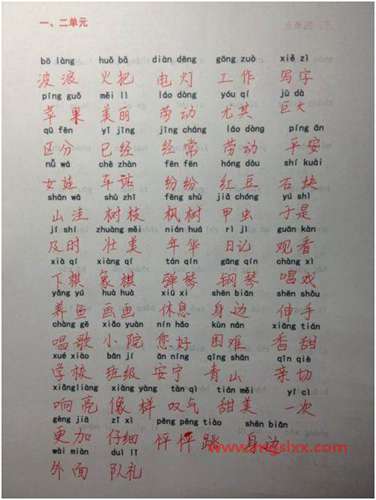 一、二单元
bō làng huǒ bǎ diàn dēng gōng zuò xiě zì
波浪 火把 电灯 工作 写字
píng guǒ měi lì láo dòng yóu qí jù dà
苹果 美丽 劳动 尤其 巨大
qū fēn yǐ jīng jīng cháng láo dòng píng ān
区分 已经 经常 劳动 平安
nǚ wá chē zhàn fēn fēn hóng dòu shí kuài
女娃 车站 纷纷 红豆 石块
shān wā shù zhī fēng shù jiǎ chóng yú shì
山洼 树枝 枫树 甲虫 于是
jí shí zhuàng měi nián huá rì jì guān kàn
及时 壮美 年华 日记 观看
xià qí xiàng qí tán qín gāng qín chàng xì
下棋 象棋 弹琴 钢琴 唱戏
yǎng yú huà huà xiū xi shēn biān shēn shǒu
养鱼 画画 休息 身边 伸手
chàng gē xiǎo yuàn nín hǎo kùn nán xiāng tián
唱歌 小院 您好 困难 香甜
xué xiào bān jí ān níng qīng shān qīn qiè
学校 班级 安宁 青山 亲切
xiǎngliàng xiàng yàng tàn qì tián měi yí cì
响亮 像样 叹气 甜美 一次
gèng jiā zǐ xì pēng pēng tiào shēn biān
更加 仔细 怦怦跳 身边
wài miàn duì lǐ
外面 队礼